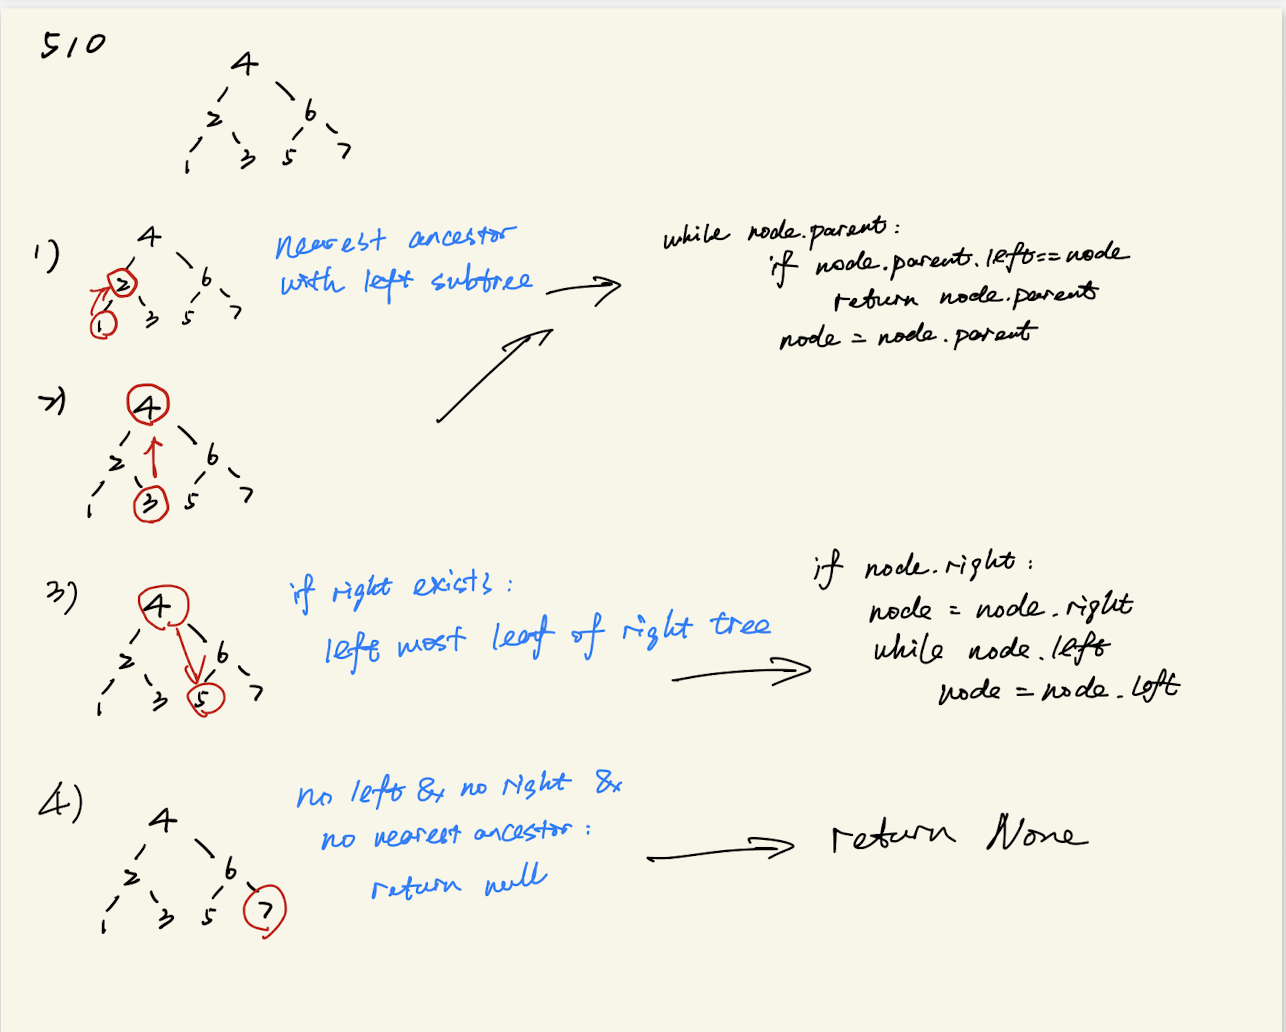 510
4
2 6
1 3 5 7
1)
4
2 6
1 3 5 7
nearest ancestor
with left subtree
while node.parent:
if node.parent.left==node
return node.parent
node = node.parent
2)
4
2 6
1 3 5 7
3)
4
2 6
1 3 5 7
if right exists:
left most leaf of right tree
if node.right:
node = node.right
while node.left
node = node.left
4)
4
2 6
1 3 5 7
no left & no right &
no nearest ancestor:
return null
return None